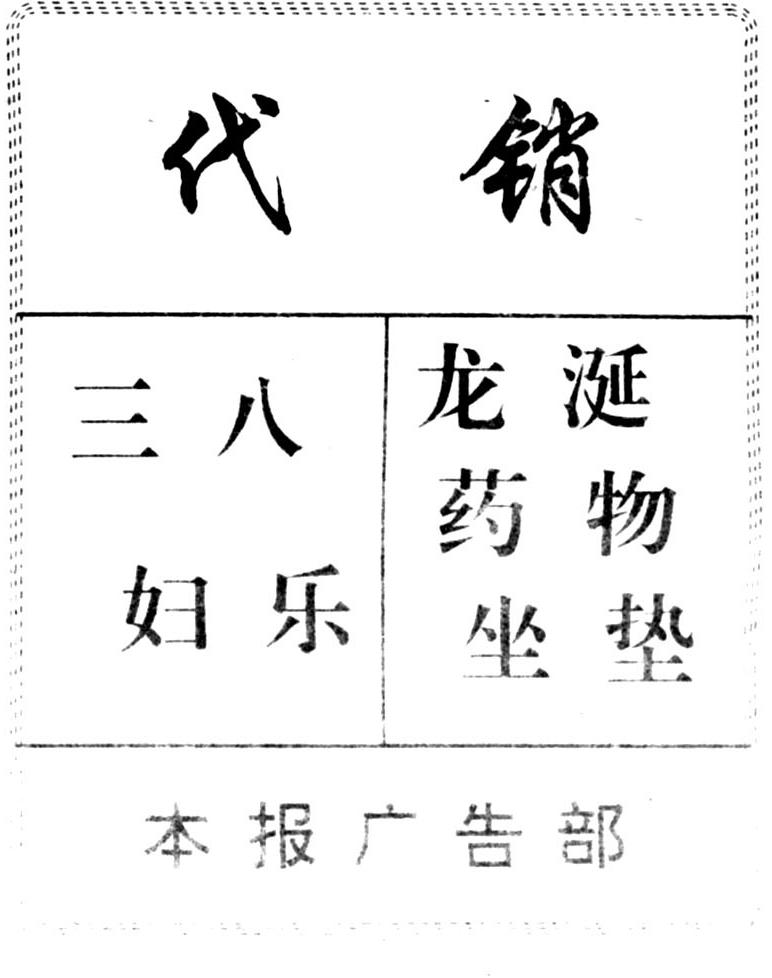 代销
三八
妇乐
龙涎
药物
坐垫
本报广告部